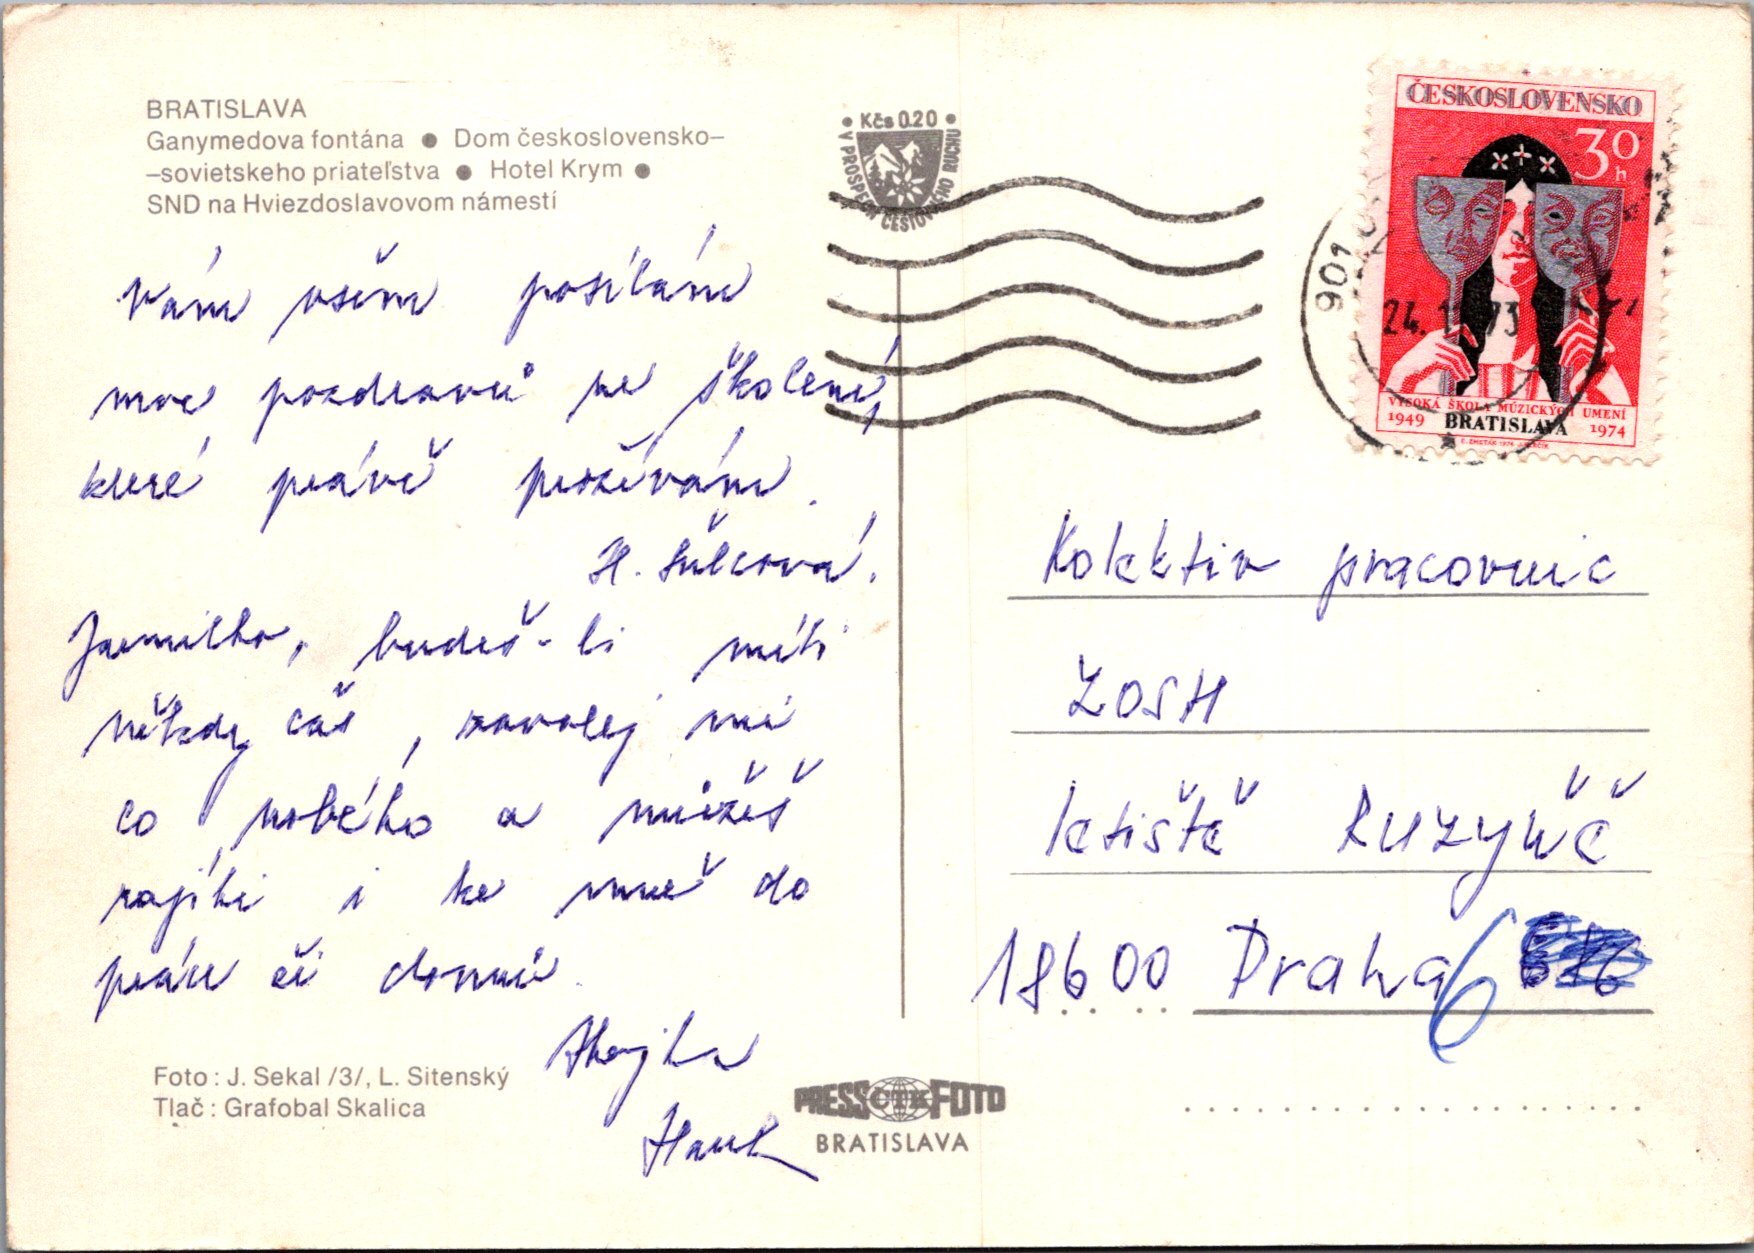 BRATISLAVA
Ganymedova fontána ● Dom československo–
–sovietskeho priateľstva ● Hotel Krym ●
SND na Hviezdoslavovom námestí
• Kčs 0.20 •
V PROSPECH CESTOVNÉHO RUCHU
ČESKOSLOVENSKO
30 h
901
24. 73
VYSOKÁ ŠKOLA MÚZICKÝCH UMENÍ
1949 BRATISLAVA 1974
Vám všem posílám
moc pozdravů ze školení,
které právě prožívám.
H. Šulcová.
Jarmilko, budeš-li míti
někdy čas, zavolej mi
co nového a můžeš
zajíti i ke mně do
práce či domů.
Ahojka
Hank
Kolektiv pracovnic
ZOSH
letiště Ruzyňě
18600 Praha 6
Foto : J. Sekal /3/, L. Sitenský
Tlač : Grafobal Skalica
PRESS ČTK FOTO
BRATISLAVA